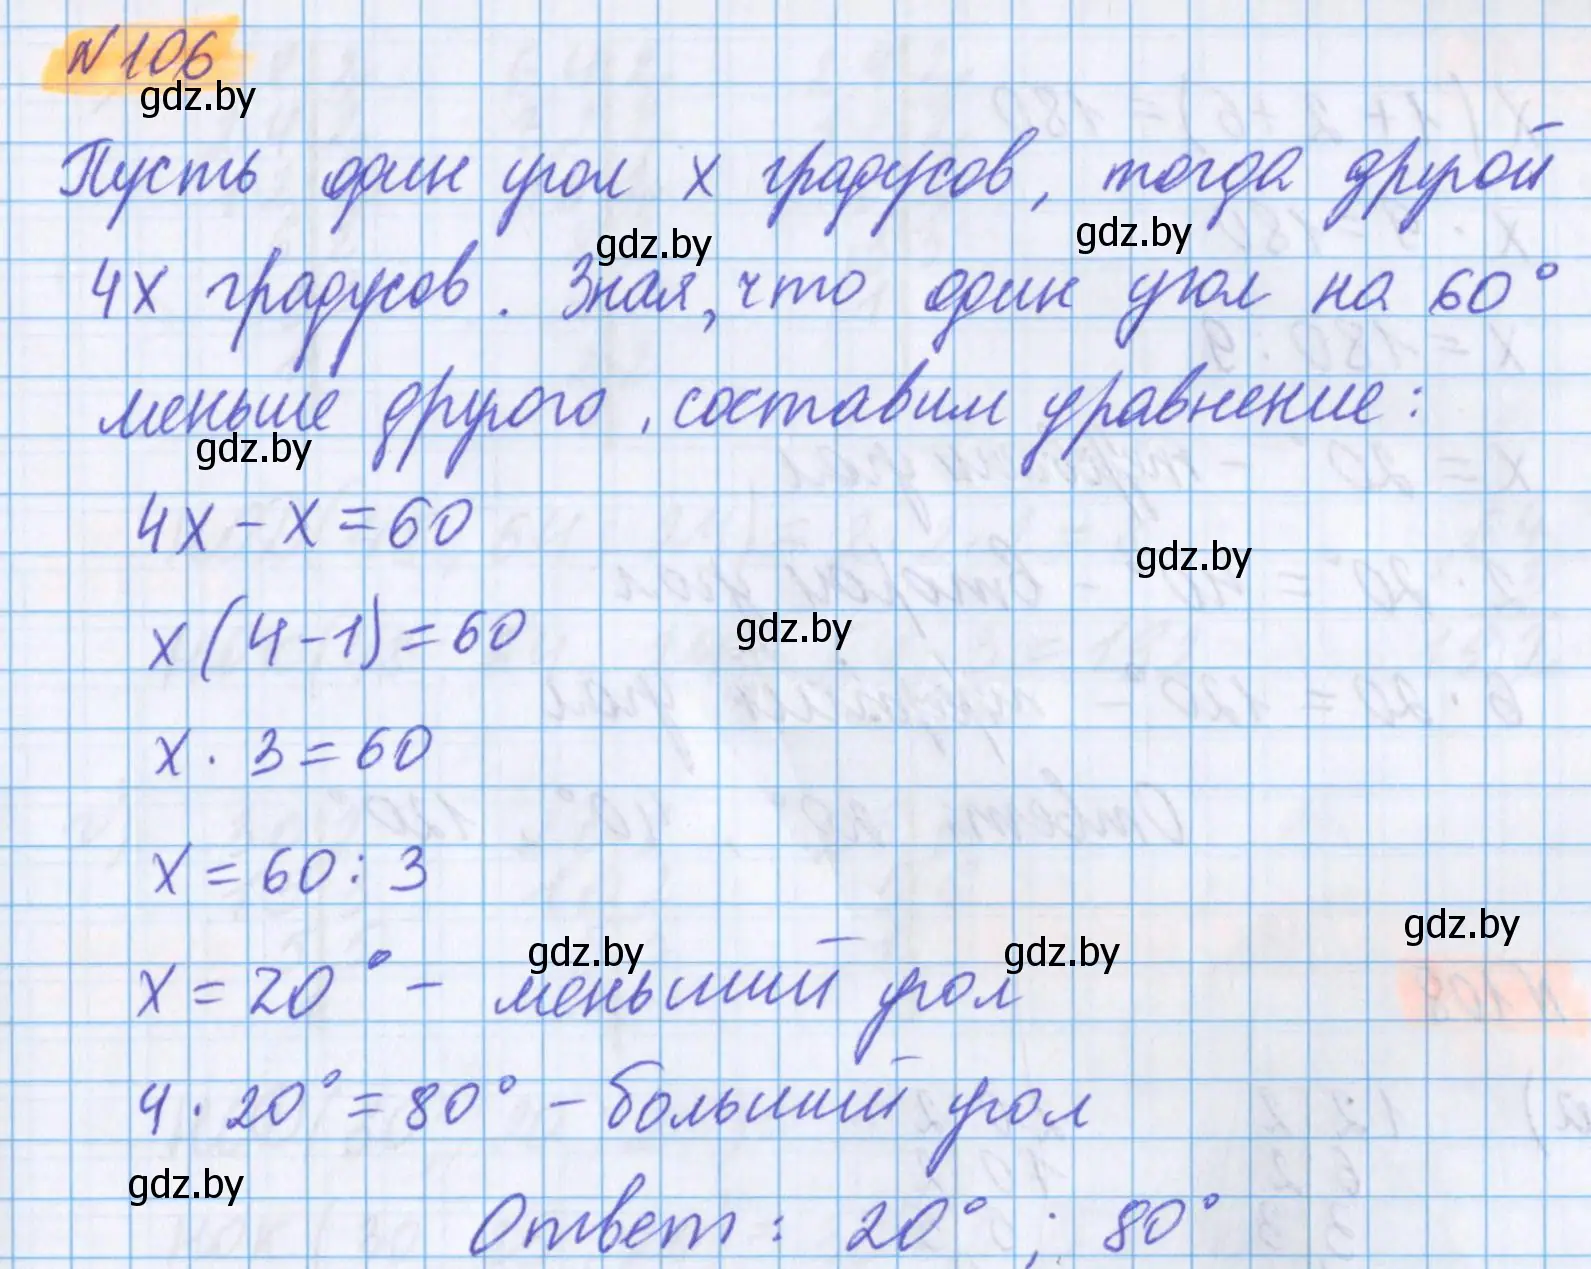 N 106
gdz.by
Пусть один угол x градусов, тогда другой
gdz.by
gdz.by
4x градусов. Зная, что один угол на 60°
меньше другого, составим уравнение:
gdz.by
4x - x = 60
gdz.by
x(4-1) = 60
gdz.by
x · 3 = 60
x = 60 : 3
gdz.by
gdz.by
gdz.by
x = 20° - меньший угол
4 · 20° = 80° - больший угол
gdz.by
Ответ: 20° ; 80°